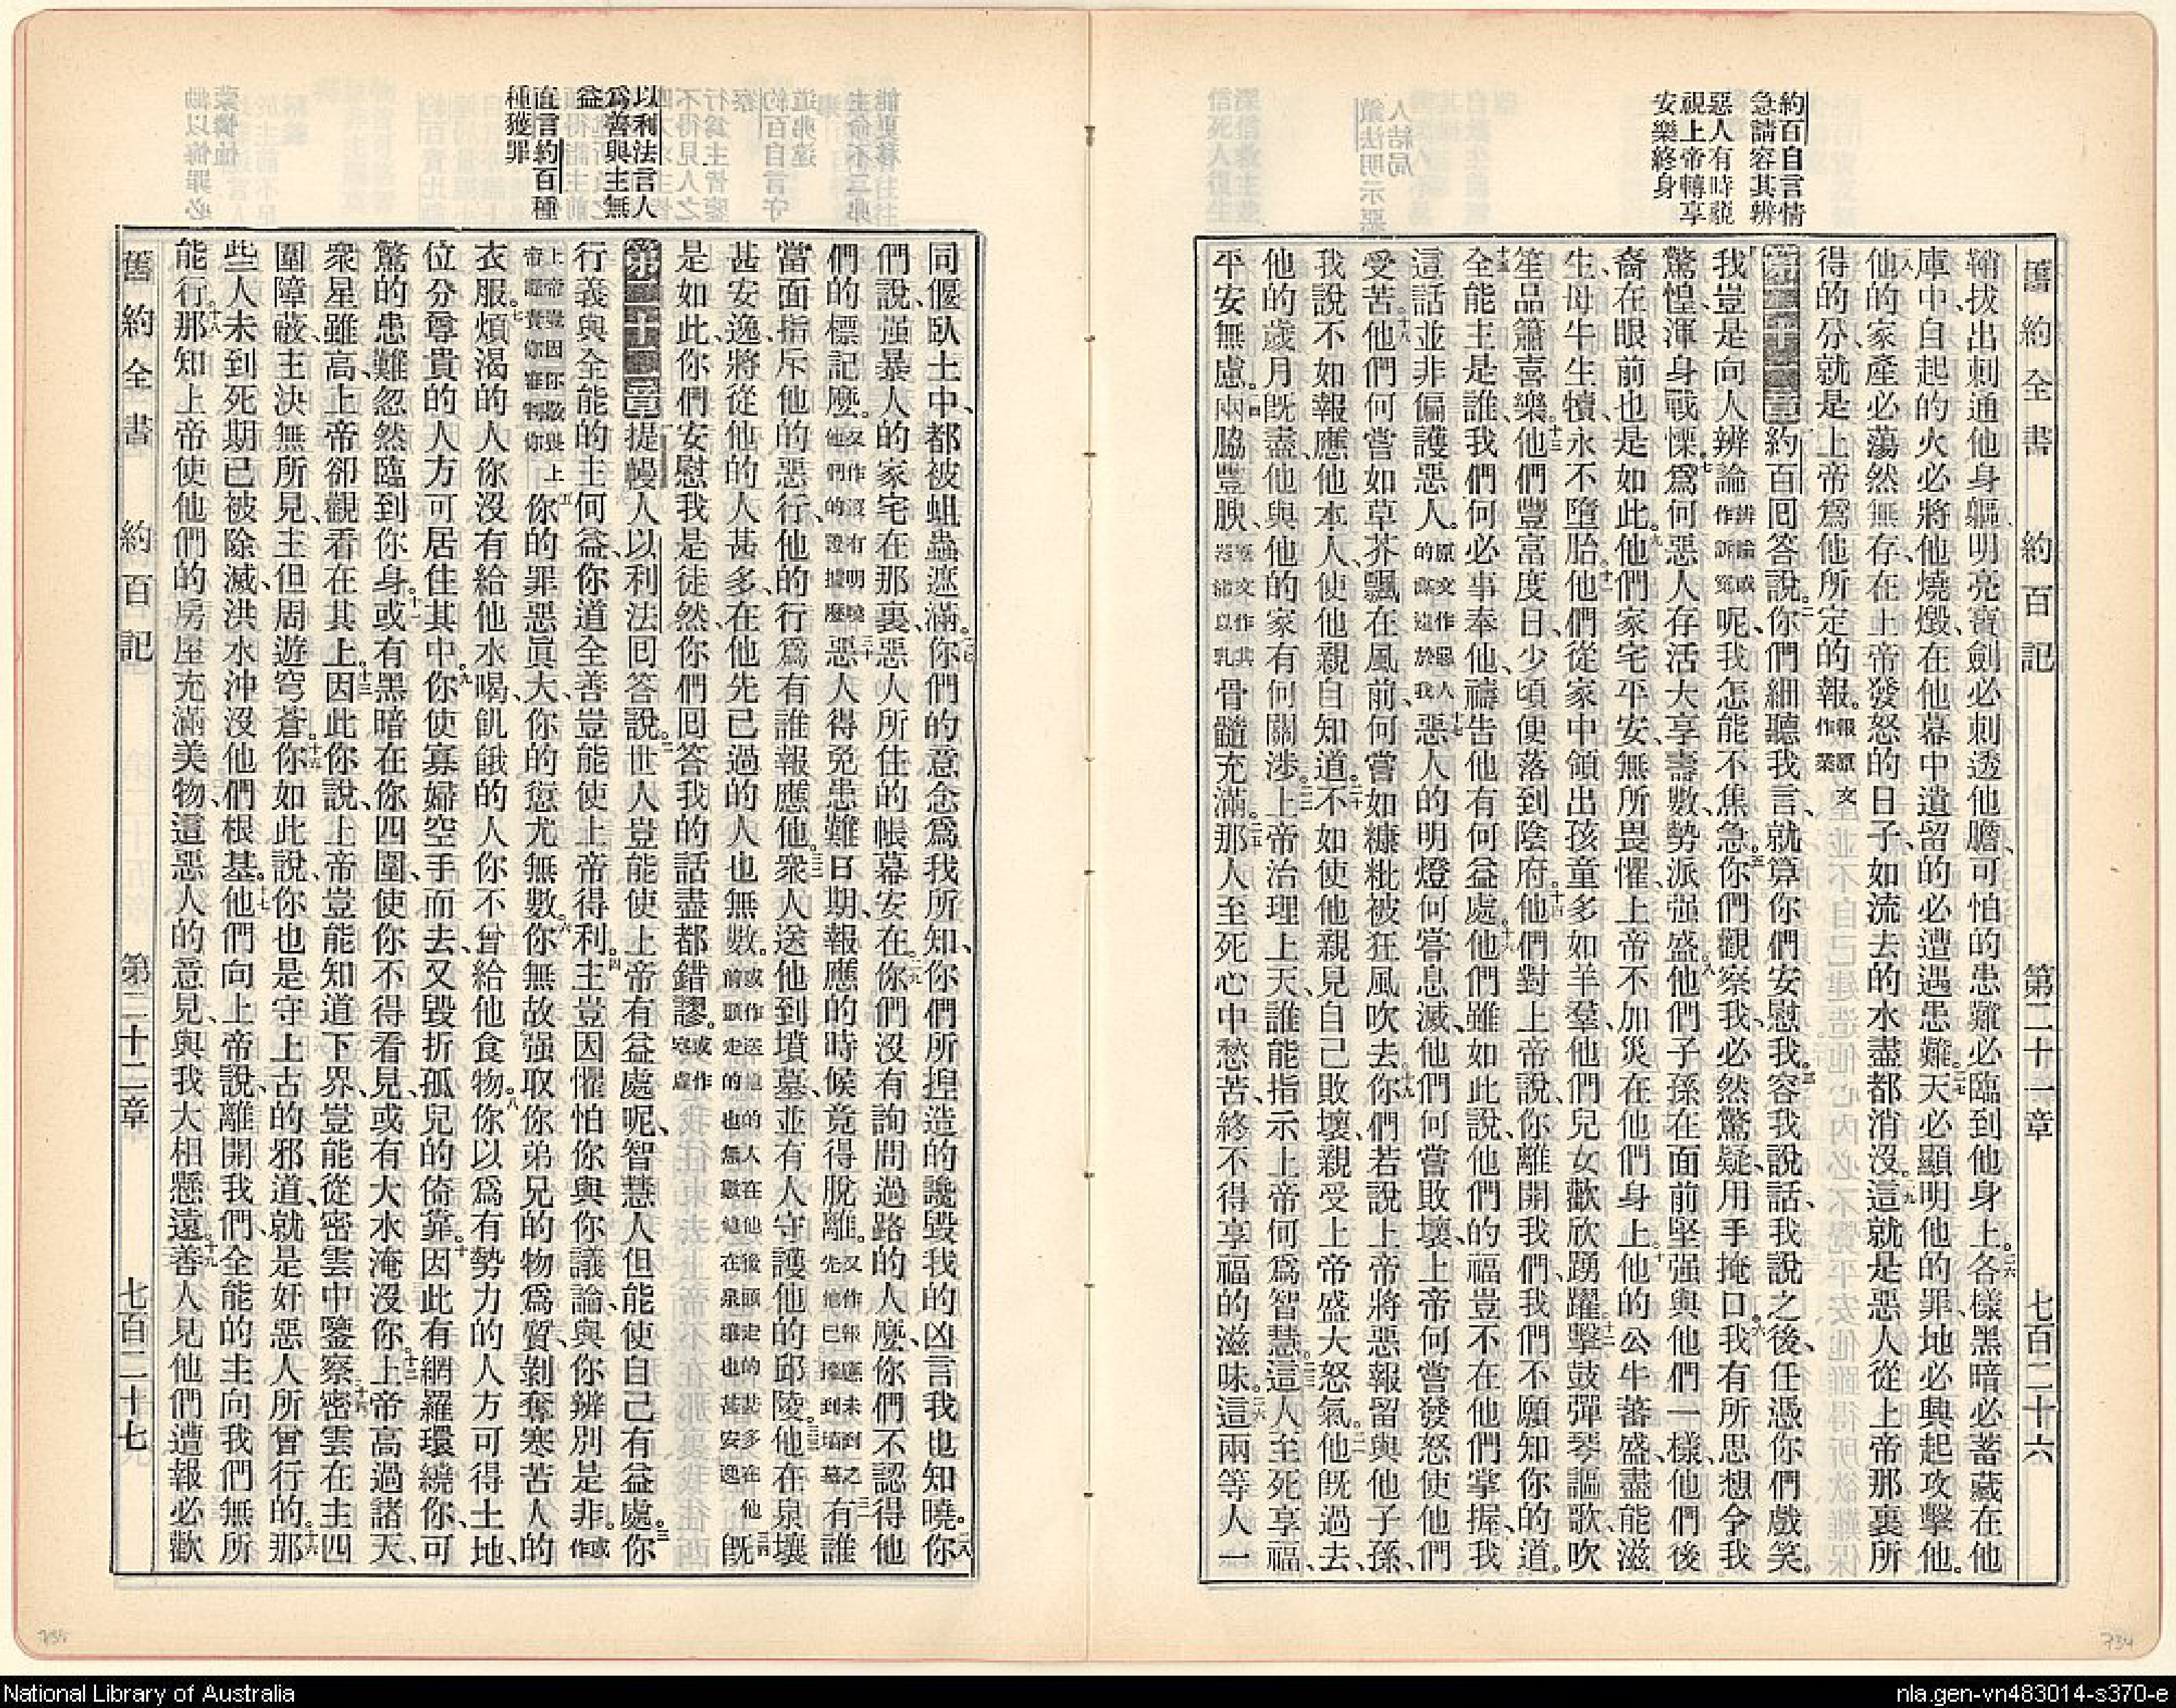 舊約全書 約百記 第二十一章 七百二十六
約百自言情
急請容其辨
惡人有時藐
視上帝轉享
安樂終身
鞘拔出刺通他身軀、明亮寶劍必刺透他膽、可怕的患難必臨到他身上。二六各樣黑暗必蓄藏在他
庫中、自起的火必將他燒燬、在他幕中遺留的必遭遇患難。二七天必顯明他的罪、地必興起攻擊他。
二八他的家產必蕩然無存、在上帝發怒的日子、如流去的水盡都消沒。二九這就是惡人從上帝那裏所
得的分、就是上帝爲他所定的報。報原文作業
第二十一章 約百回答說。二你們細聽我言、就算你們安慰我。三容我說話、我說之後、任憑你們戲笑。
四我豈是向人辨論辨論或作訴冤呢、我怎能不焦急。五你們觀察我、必然驚疑、用手掩口。六我有所思想、令我
驚惶、渾身戰慄。七爲何惡人存活大享壽數、勢派强盛。八他們子孫在面前堅强、與他們一樣、他們後
裔在眼前也是如此。九他們家宅平安、無所畏懼、上帝不加災在他們身上。十他的公牛蕃盛、盡能滋
生、母牛生犢、永不墮胎。十一他們從家中領出孩童多如羊羣、他們兒女歡欣踴躍。十二擊鼓彈琴謳歌、吹
笙品簫喜樂。十三他們豐富度日、少頃便落到陰府。十四他們對上帝說、你離開我們、我們不願知你的道。
十五全能主是誰、我們何必事奉他、禱告他有何益處。十六他們雖如此說、他們的福豈不在他們掌握、我
這話並非偏護惡人。原文作惡人的謀遠於我十七惡人的明燈何嘗息滅、他們何嘗敗壞、上帝何嘗發怒使他們
受苦。十八他們何嘗如草芥飄在風前、何嘗如糠粃被狂風吹去。十九你們若說上帝將惡報留與他子孫、
我說不如報應他本人、使他親自知道。二十不如使他親見自己敗壞、親受上帝盛大怒氣。二一他旣過去、
他的歲月旣盡、他與他的家有何關涉。二二上帝治理上天、誰能指示上帝何爲智慧。二三這人至死享福、
平安無慮。二四兩脇豐腴、原文作其器滿以乳骨髓充滿。二五那人至死心中愁苦、終不得享福的滋味。二六這兩等人一
同偃臥土中、都被蛆蟲遮滿。二七你們的意念爲我所知、你們所揑造的讒毀我的凶言我也知曉。二八你
們說、强暴人的家宅在那裏、惡人所住的帳幕安在。二九你們沒有詢問過路的人麼、你們不認得他
們的標記麼。又作沒有明曉他們的證據麼三十惡人得免患難日期、報應的時候、竟得脫離。又作報應未到之先他已擡到墳墓三一有誰
當面指斥他的惡行、他的行爲有誰報應他。三二衆人送他到墳墓、並有人守護他的邱陵。三三他在泉壤
甚安逸、將從他的人甚多、在他先已過的人也無數。或作送他的人在他後頭走的甚多在他前頭走的也無數他在泉壤也甚安逸三四旣
是如此、你們安慰我是徒然、你們回答我的話盡都錯謬。或作空虛
以利法言人
爲善與主無
益
直言約百種
種獲罪
第二十二章 提幔人以利法回答說。二世人豈能使上帝有益處呢、智慧人但能使自己有益處。三你
行義與全能的主何益、你道全善豈能使上帝得利。四主豈因懼怕你與你議論、與你辨別是非。或作
上帝豈因你敬畏上帝纔責你審判你五你的罪惡眞大、你的愆尤無數。六你無故强取你弟兄的物爲質、剝奪寒苦人的
衣服。七煩渴的人你沒有給他水喝、飢餓的人你不曾給他食物。八你以爲有勢力的人方可得土地、
位分尊貴的人方可居住其中。九你使寡婦空手而去、又毀折孤兒的倚靠。十因此有網羅環繞你、可
驚的患難忽然臨到你身。十一或有黑暗在你四圍、使你不得看見、或有大水淹沒你。十二上帝高過諸天、
衆星雖高、上帝卻觀看在其上。十三因此你說、上帝豈能知道下界、豈能從密雲中鑒察。十四密雲在主四
圍障蔽、主決無所見、主但周遊穹蒼。十五你如此說、你也是守上古的邪道、就是奸惡人所曾行的。十六那
些人未到死期已被除滅、洪水沖沒他們根基。十七他們向上帝說、離開我們、全能的主向我們無所
能行。十八那知上帝使他們的房屋充滿美物、這惡人的意見、與我大相懸遠。十九善人見他們遭報必歡
舊約全書 約百記 第二十二章 七百二十七
735
734
National Library of Australia
nla.gen-vn483014-s370-e